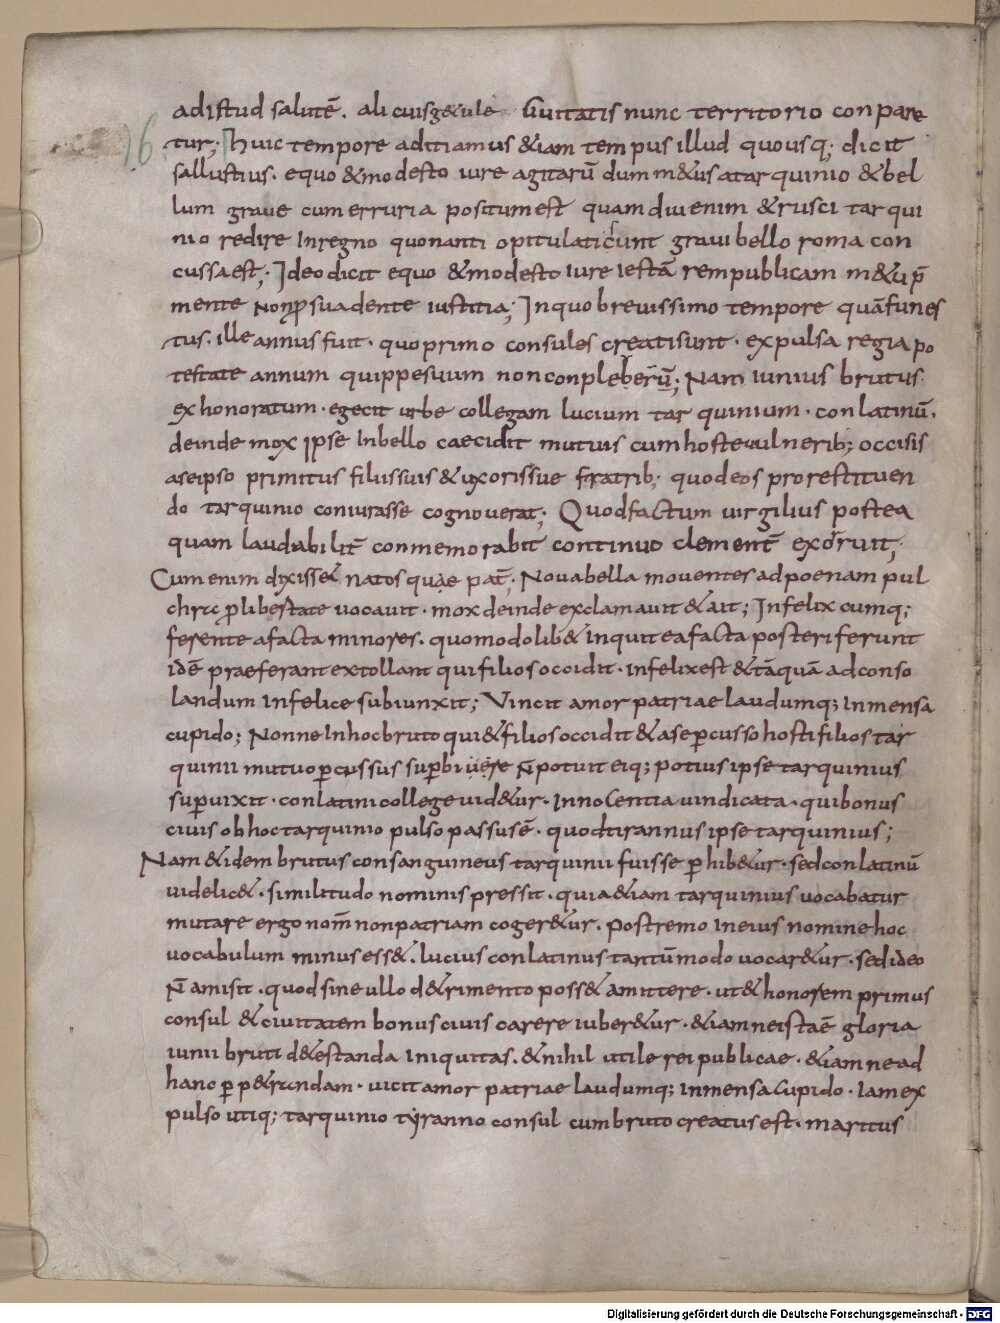 adistud salutē. ali cuisg&ulę Guitatis nunc territorio conpare
16
tur; Huic tempore aditiamus &iam tempus illud quousq; dicit
sallustius. equo &modesto iure agitarū dum m&usatarquinio &bel
lum graue cum erruria positum est quam diu enim &rusci tarqui
nio redire In regno quonanti opitulaticunt graui bello roma con
cussa est; Ideo dicit equo &modesto iure iestā rempublicam m&u p̄
mente non p̱suadente iustitia; In quo breuissimo tempore quā funes
tus. ille annus fuit. quo primo consules creati sunt. expulsa regia po
testate annum quippe suum non conpleberū; Nam iunius brutus
exhonoratum. egecit urbe collegam lucium tarquinium. conlatinū.
deinde mox ipse In bello caecidit mutuis cum hoste uulnerib; occisis
aseipso primitus filiis suis &uxoris sue fratrib; quod eos pro restituen
do tarquinio coniurasse cognouerat; Quod factum uirgilius postea
quam laudabilit̄ conmemorabit continuo clement̄ exorruit;
Cum enim dixiss& natos quae pat̄; Noua bella mouentes ad poenam pul
chrā p̱ libestate uocauit. mox deinde exclamauit &ait; Infelix cumq;
ferente a facta minores. quomodo lib& inquit ea facta posteri ferunt
idē praeferant extollant qui filios occidit. infelix est &tāquā ad conso
landum infelice subiunxit; Vincit amor patriae laudumq; inmensa
cupido; Nonne In hoc bruto qui &filios occidit &a se p̱cusso hosti filios tar
quinii mutuo p̱cussus sup̱bi uęre n̄ potuit eiq; potius ipse tarquinius
sup̱uixit. conlatini college uid&ur. Innocentia uindicata. qui bonus
ciuis ob hoc tarquinio pulso passus ē. quod tirannus ipse tarquinius;
Nam &idem brutus consanguineus tarquinii fuisse p̱ hib&ur. sed conlatinū
uidelic&. similitudo nominis pressit. quia &iam tarquinius uocabatur
mutare ergo nom̄ non patriam coger&ur. postremo In eius nomine hoc
uocabulum minus ess&. lucius conlatinus tantū modo uocar&ur. sed ideo
n̄ amisit. quod sine ullo d&rimento poss& amittere. ut &honorem primus
consul &ciuitatem bonus ciuis carere iuber&ur. &iamne ista ē gloria
iunii bruti d&estanda iniquitas. &nihil utile rei publicae. &iamne ad
hanc p̱ p&randam. uicit amor patriae laudumq; inmensa cupido. Iam ex
pulso utiq; tarquinio tyranno consul cum bruto creatus est. maritus
Digitalisierung gefördert durch die Deutsche Forschungsgemeinschaft - DFG